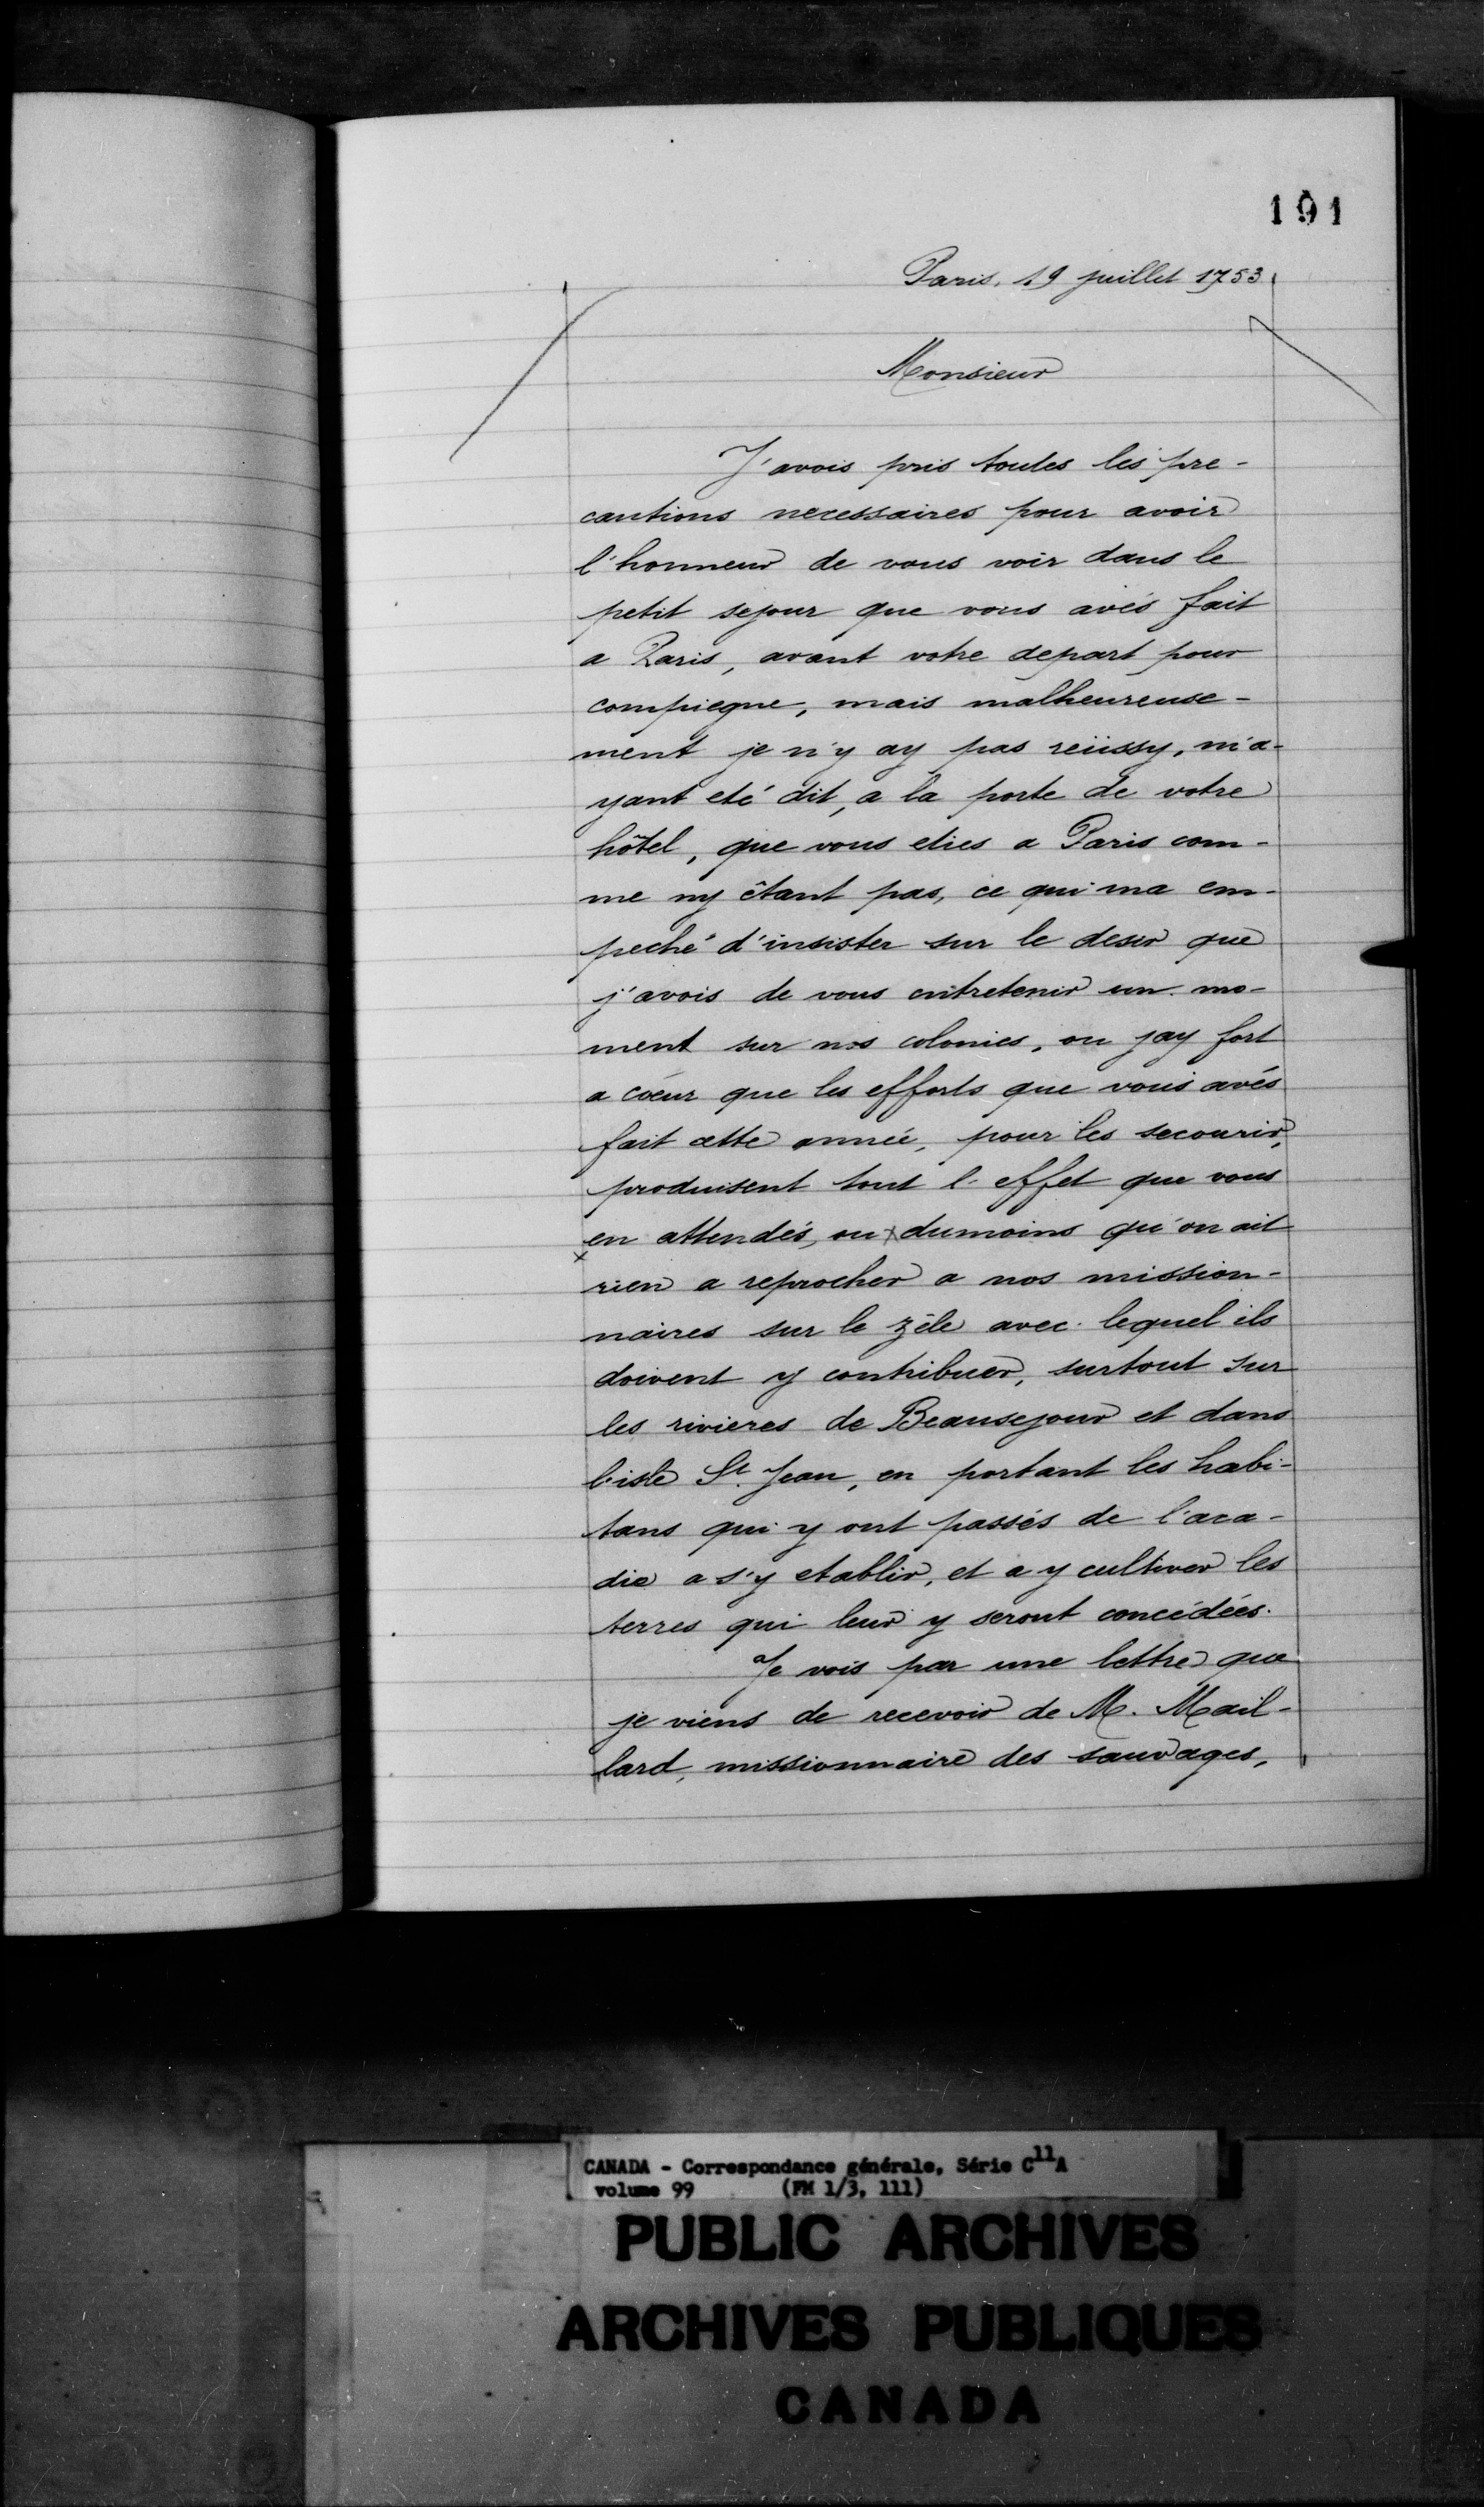 191
Paris, 19 juillet 1753
Monsieur
J'avois pris toutes les pre-
cautions necessaires pour avoir
l'honneur de vous voir dans le
petit sejour que vous avés fait
a Paris, avant votre depart pour
compiegne, mais malheureuse-
ment je n'y ay pas reüssy, m'a-
yant eté dit, a la porte de votre
hôtel, que vous eties a Paris com-
me ny étant pas, ce qui ma em-
peché d'insister sur le desir que
j'avois de vous entretenir un mo-
ment sur nos colonies, ou jay fort
a coeur que les efforts que vous avés
fait cette année, pour les secourir,
produisent tout l'effet que vous
en attendés, ou x dumoins qu'on ait
x
rien a reprocher a nos mission-
naires sur le zéle avec lequel ils
doivent y contribuer, surtout sur
les rivieres de Beausejour et dans
l'isle St. Jean, en portant les habi-
tans qui y ont passés de l'aca-
die a s'y etablir, et a y cultiver les
terres qui leur y seront concédées.
Je vois par une lettre que
je viens de recevoir de M. Mail-
lard, missionnaire des sauvages,
CANADA - Correspondance générale, Série C11A
volume 99 (FM 1/3, 111)
PUBLIC ARCHIVES
ARCHIVES PUBLIQUES
CANADA